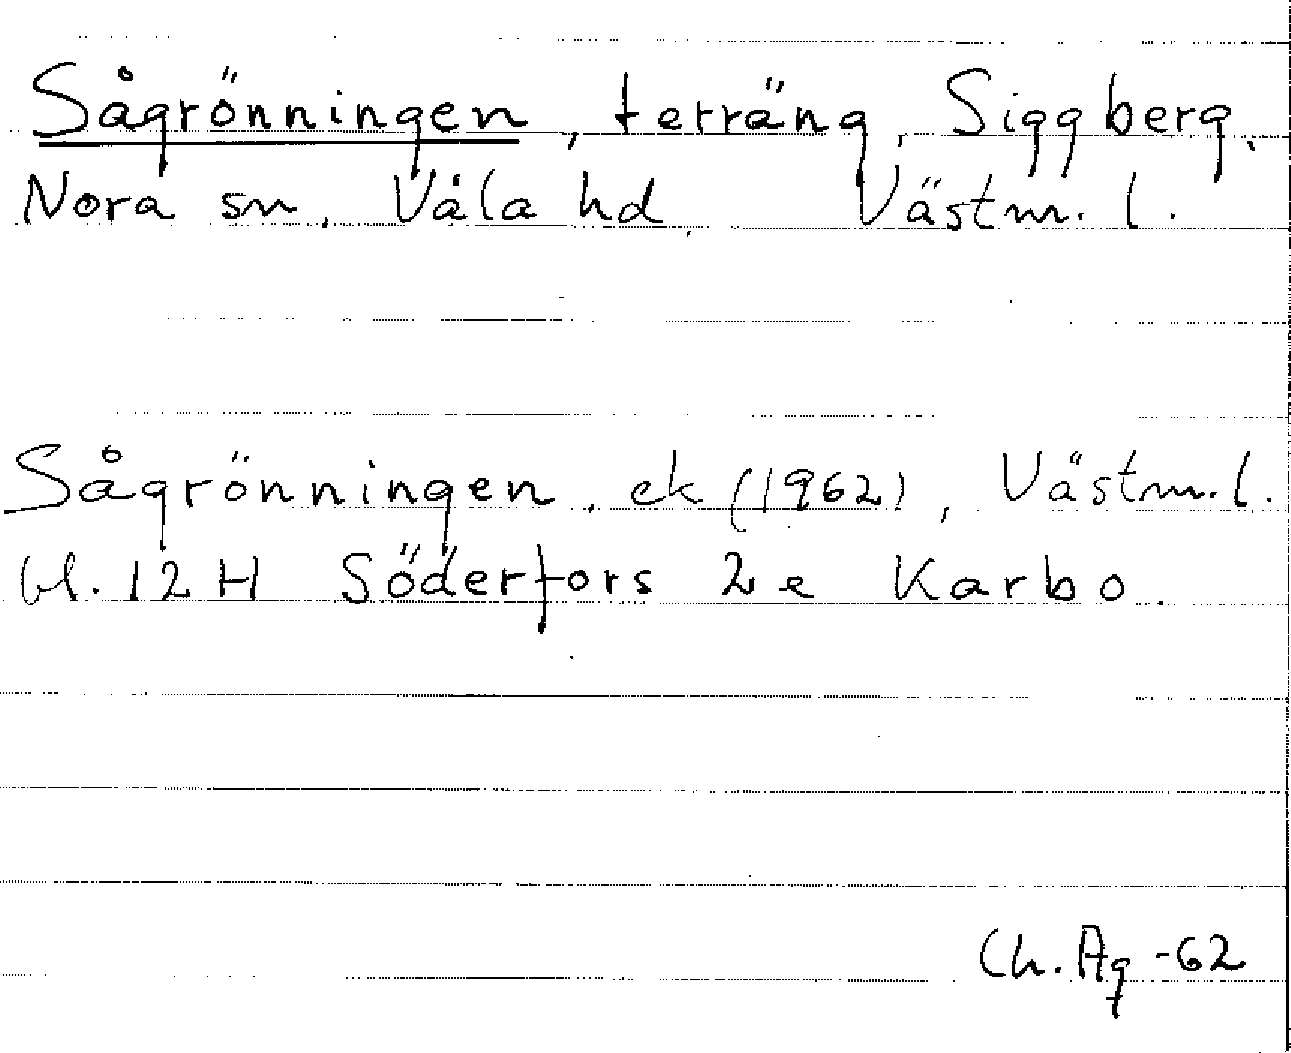 Sågrönningen, terräng, Siggberg,
Nora sn, Våla hd, Västm. l.
Sågrönningen, ek (1962), Västm. l.
bl. 12 H Söderfors 2 e Karbo.
Ch. Ag -62